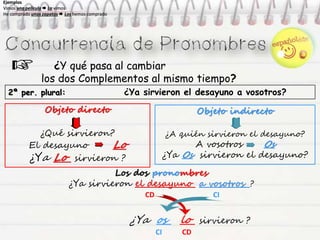 Ejemplos
Vimos una película ➨ La vimos
He comprado unos zapatos ➨ Los hemos comprado
Concurrencia de Pronombres
españolízate
☞ ¿Y qué pasa al cambiar
los dos Complementos al mismo tiempo?
2ª per. plural: ¿Ya sirvieron el desayuno a vosotros?
Objeto directo
¿Qué sirvieron?
El desayuno ➡ Lo
¿Ya Lo sirvieron ?
Objeto indirecto
¿A quién sirvieron el desayuno?
A vosotros ➡ Os
¿Ya Os sirvieron el desayuno?
Los dos pronombres
¿Ya sirvieron el desayuno a vosotros ?
CD CI
¿Ya os lo sirvieron ?
CI CD